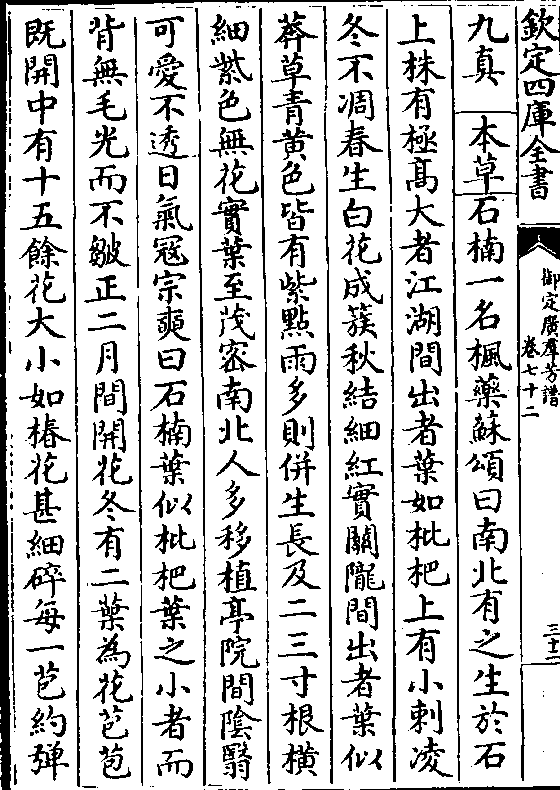 欽定四庫全書
御定廣羣芳譜
卷七十二
三十二
九真　本草石楠一名楓藥蘇頌曰南北有之生於石
上株有極髙大者江湖間出者葉如枇杷上有小刺凌
冬不凋春生白花成簇秋結細紅實關隴間出者葉似
莽草青黄色皆有紫點雨多則併生長及二三寸根横
細紫色無花實葉至茂密南北人多移植亭院間陰翳
可愛不透日氣冦宗奭曰石楠葉似枇杷葉之小者而
背無毛光而不皺正二月間開花冬有二葉為花苞苞
既開中有十五餘花大小如椿花甚細碎每一苞約弹